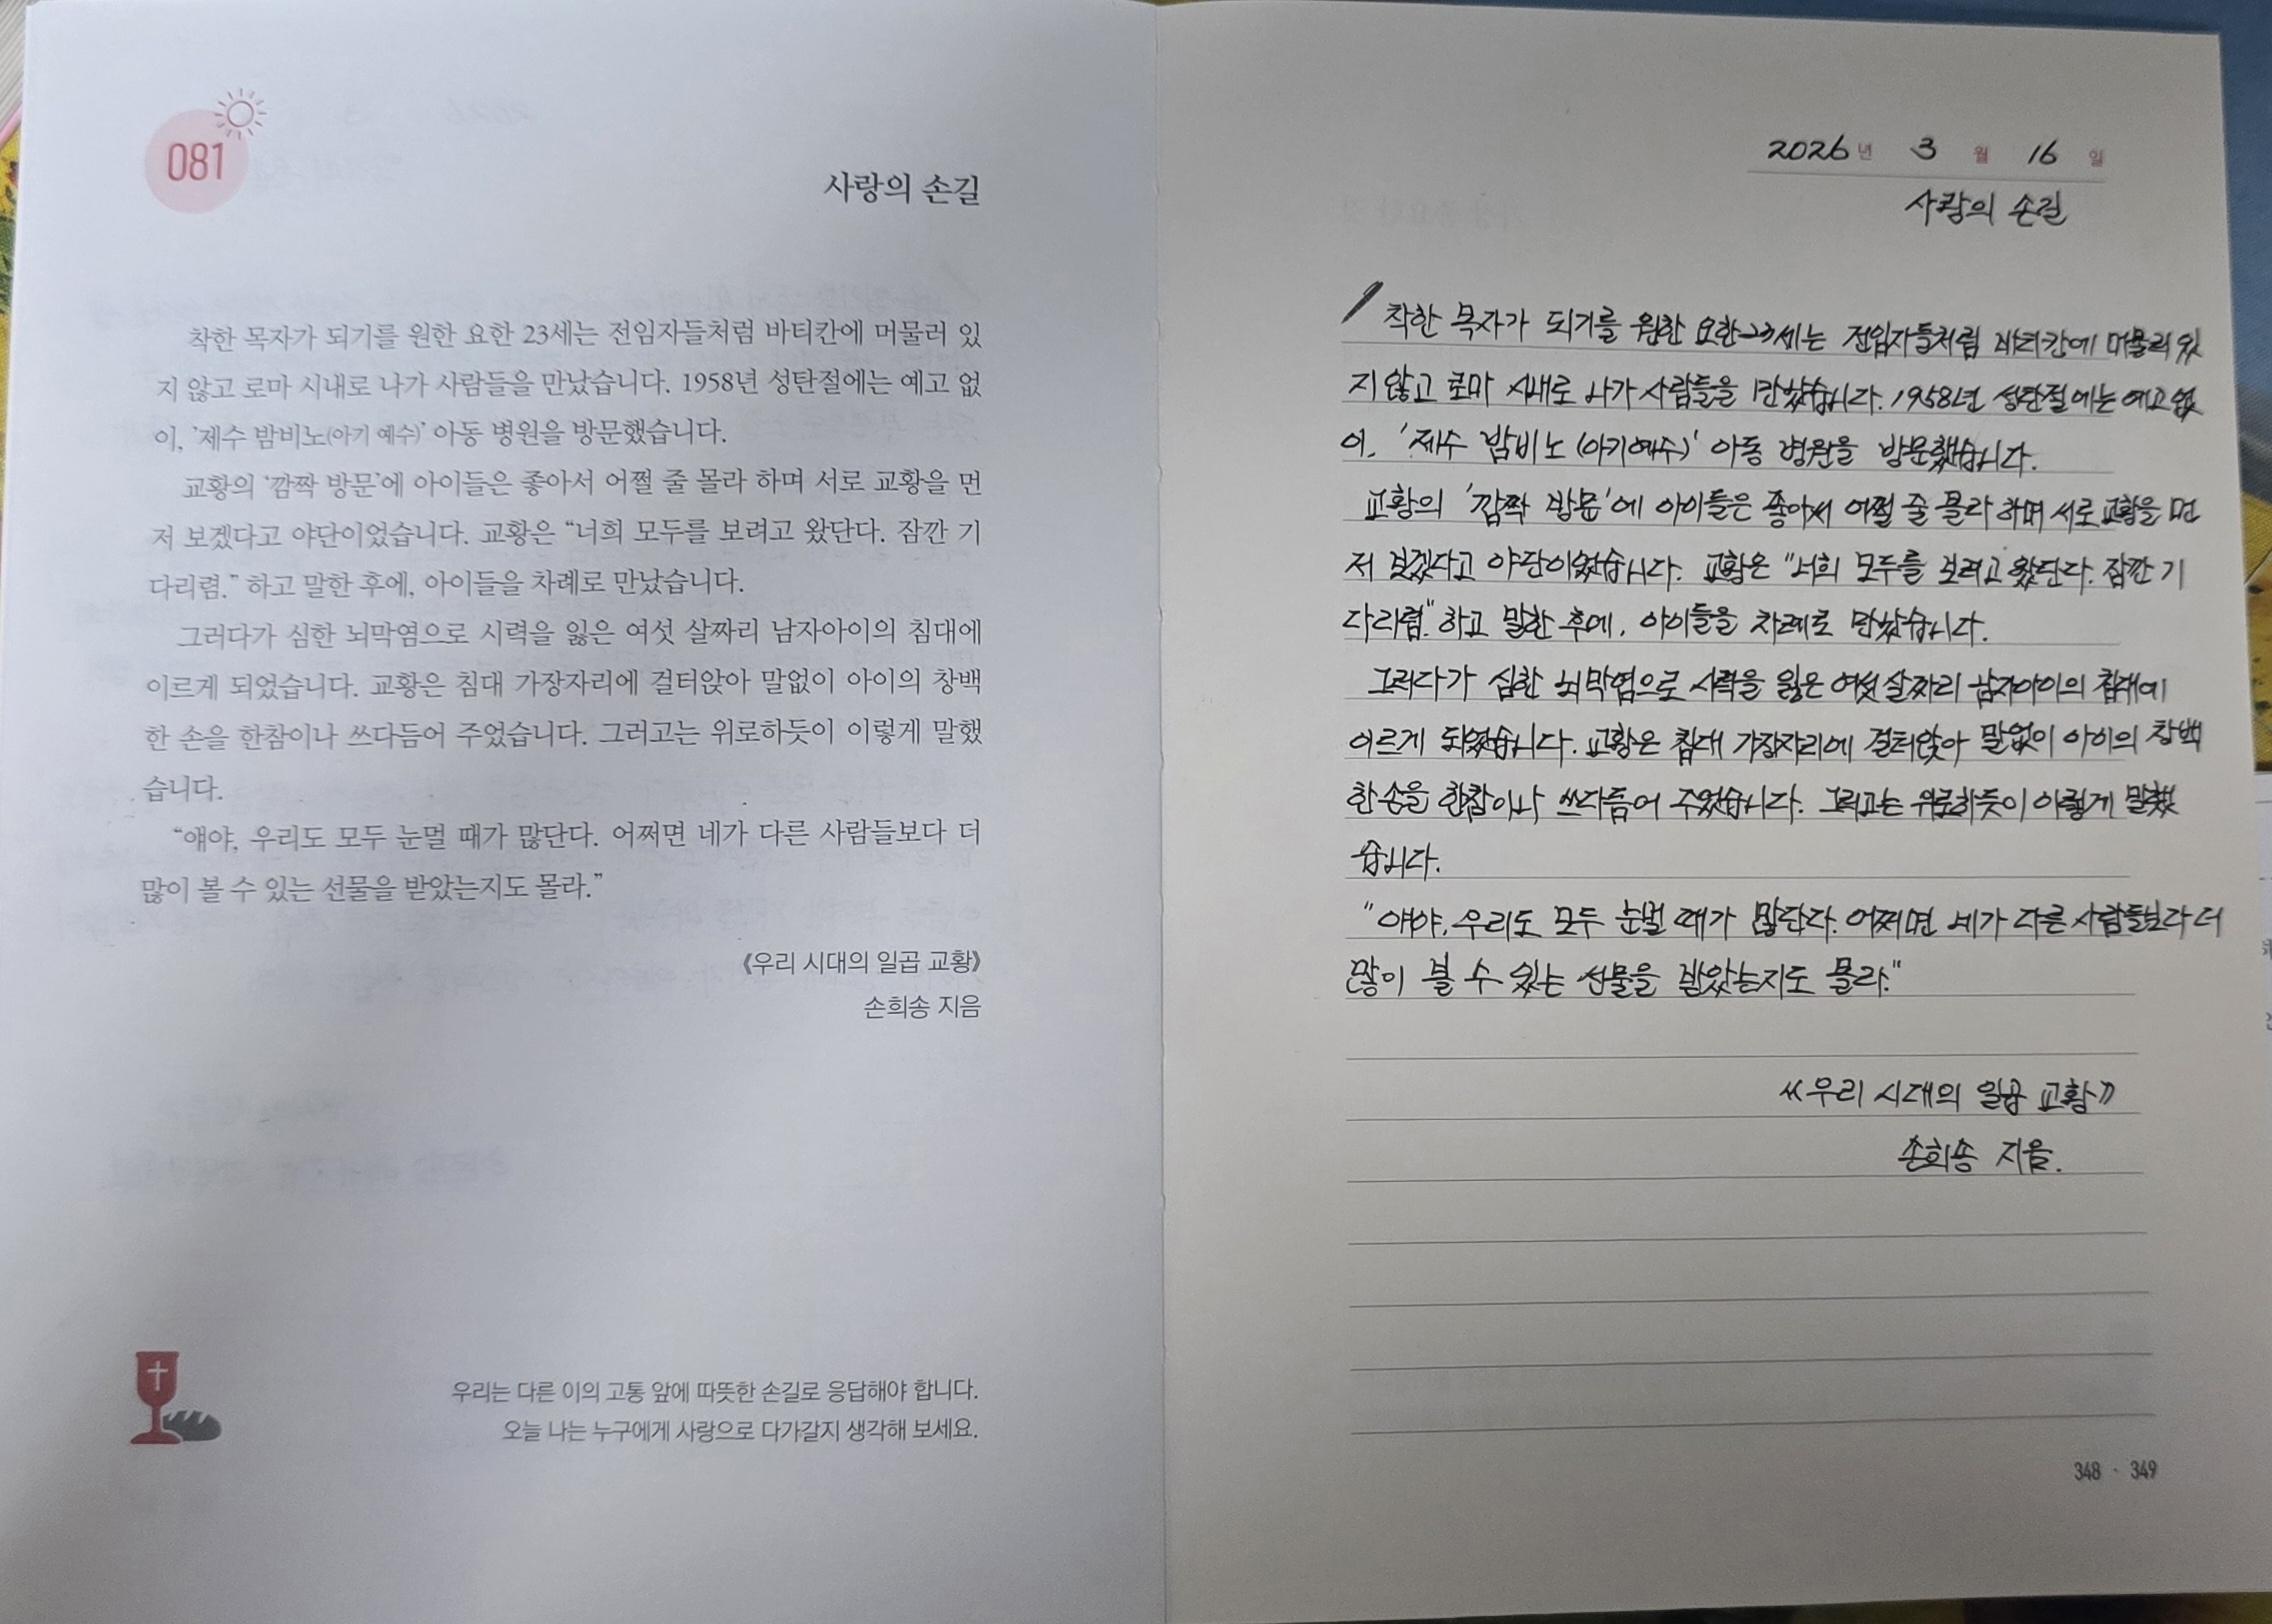 081
사랑의 손길
착한 목자가 되기를 원한 요한 23세는 전임자들처럼 바티칸에 머물러 있
지 않고 로마 시내로 나가 사람들을 만났습니다. 1958년 성탄절에는 예고 없
이, '제수 밤비노(아기 예수)' 아동 병원을 방문했습니다.
교황의 '깜짝 방문'에 아이들은 좋아서 어쩔 줄 몰라 하며 서로 교황을 먼
저 보겠다고 야단이었습니다. 교황은 “너희 모두를 보려고 왔단다. 잠깐 기
다리렴.” 하고 말한 후에, 아이들을 차례로 만났습니다.
그러다가 심한 뇌막염으로 시력을 잃은 여섯 살짜리 남자아이의 침대에
이르게 되었습니다. 교황은 침대 가장자리에 걸터앉아 말없이 아이의 창백
한 손을 한참이나 쓰다듬어 주었습니다. 그러고는 위로하듯이 이렇게 말했
습니다.
“얘야, 우리도 모두 눈멀 때가 많단다. 어쩌면 네가 다른 사람들보다 더
많이 볼 수 있는 선물을 받았는지도 몰라.”
《우리 시대의 일곱 교황》
손희송 지음
우리는 다른 이의 고통 앞에 따뜻한 손길로 응답해야 합니다.
오늘 나는 누구에게 사랑으로 다가갈지 생각해 보세요.
2026년 3월 16일
사랑의 손길
착한 목자가 되기를 원한 요한 23세는 전임자들처럼 바티칸에 머물러 있
지 않고 로마 시내로 나가 사람들을 만났습니다. 1958년 성탄절에는 예고 없
이. '제수 밤비노 (아기예수)' 아동 병원을 방문했습니다.
교황의 '깜짝 방문'에 아이들은 좋아서 어쩔 줄 몰라 하며 서로 교황을 먼
저 보겠다고 야단이었습니다. 교황은 "너희 모두를 보려고 왔단다. 잠깐 기
다리렴." 하고 말한 후에, 아이들을 차례로 만났습니다.
그러다가 심한 뇌막염으로 시력을 잃은 여섯 살짜리 남자아이의 침대에
이르게 되었습니다. 교황은 침대 가장자리에 걸터앉아 말없이 아이의 창백
한 손을 한참이나 쓰다듬어 주었습니다. 그러고는 위로하듯이 이렇게 말했
습니다.
"얘야, 우리도 모두 눈멀 때가 많단다. 어쩌면 네가 다른 사람들보다 더
많이 볼 수 있는 선물을 받았는지도 몰라."
《우리 시대의 일곱 교황》
손희송 지음.
348 · 349